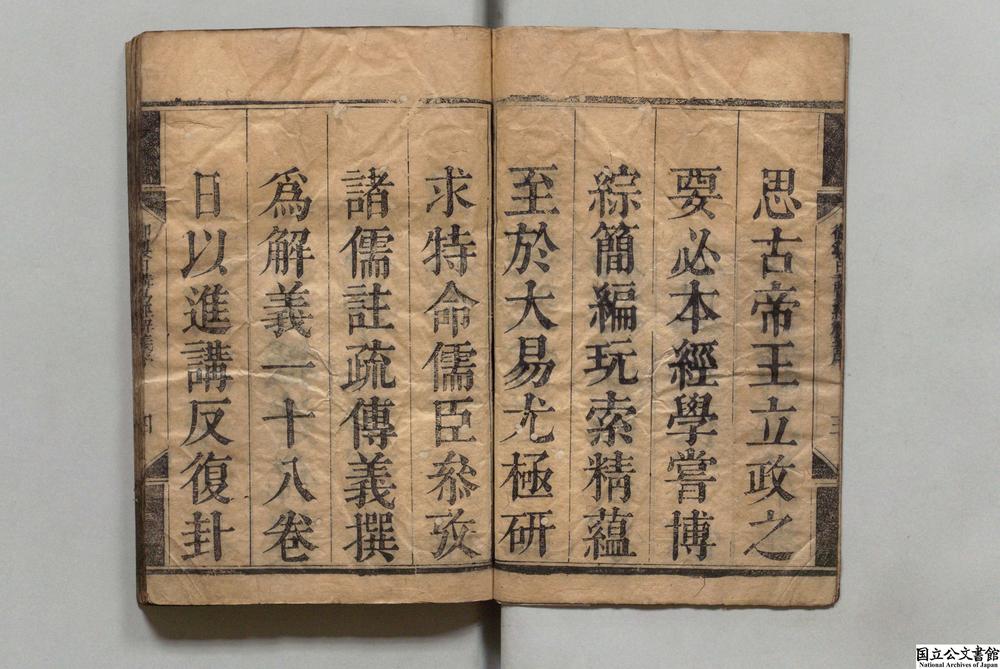 思古帝王立政之
要必本經學嘗博
綜簡編玩索精蘊
至於大易尤極研
求特命儒臣叅攷
諸儒註疏傳義撰
爲解義一十八卷
日以進講反復卦
國立公文書館
National Archives of Japan